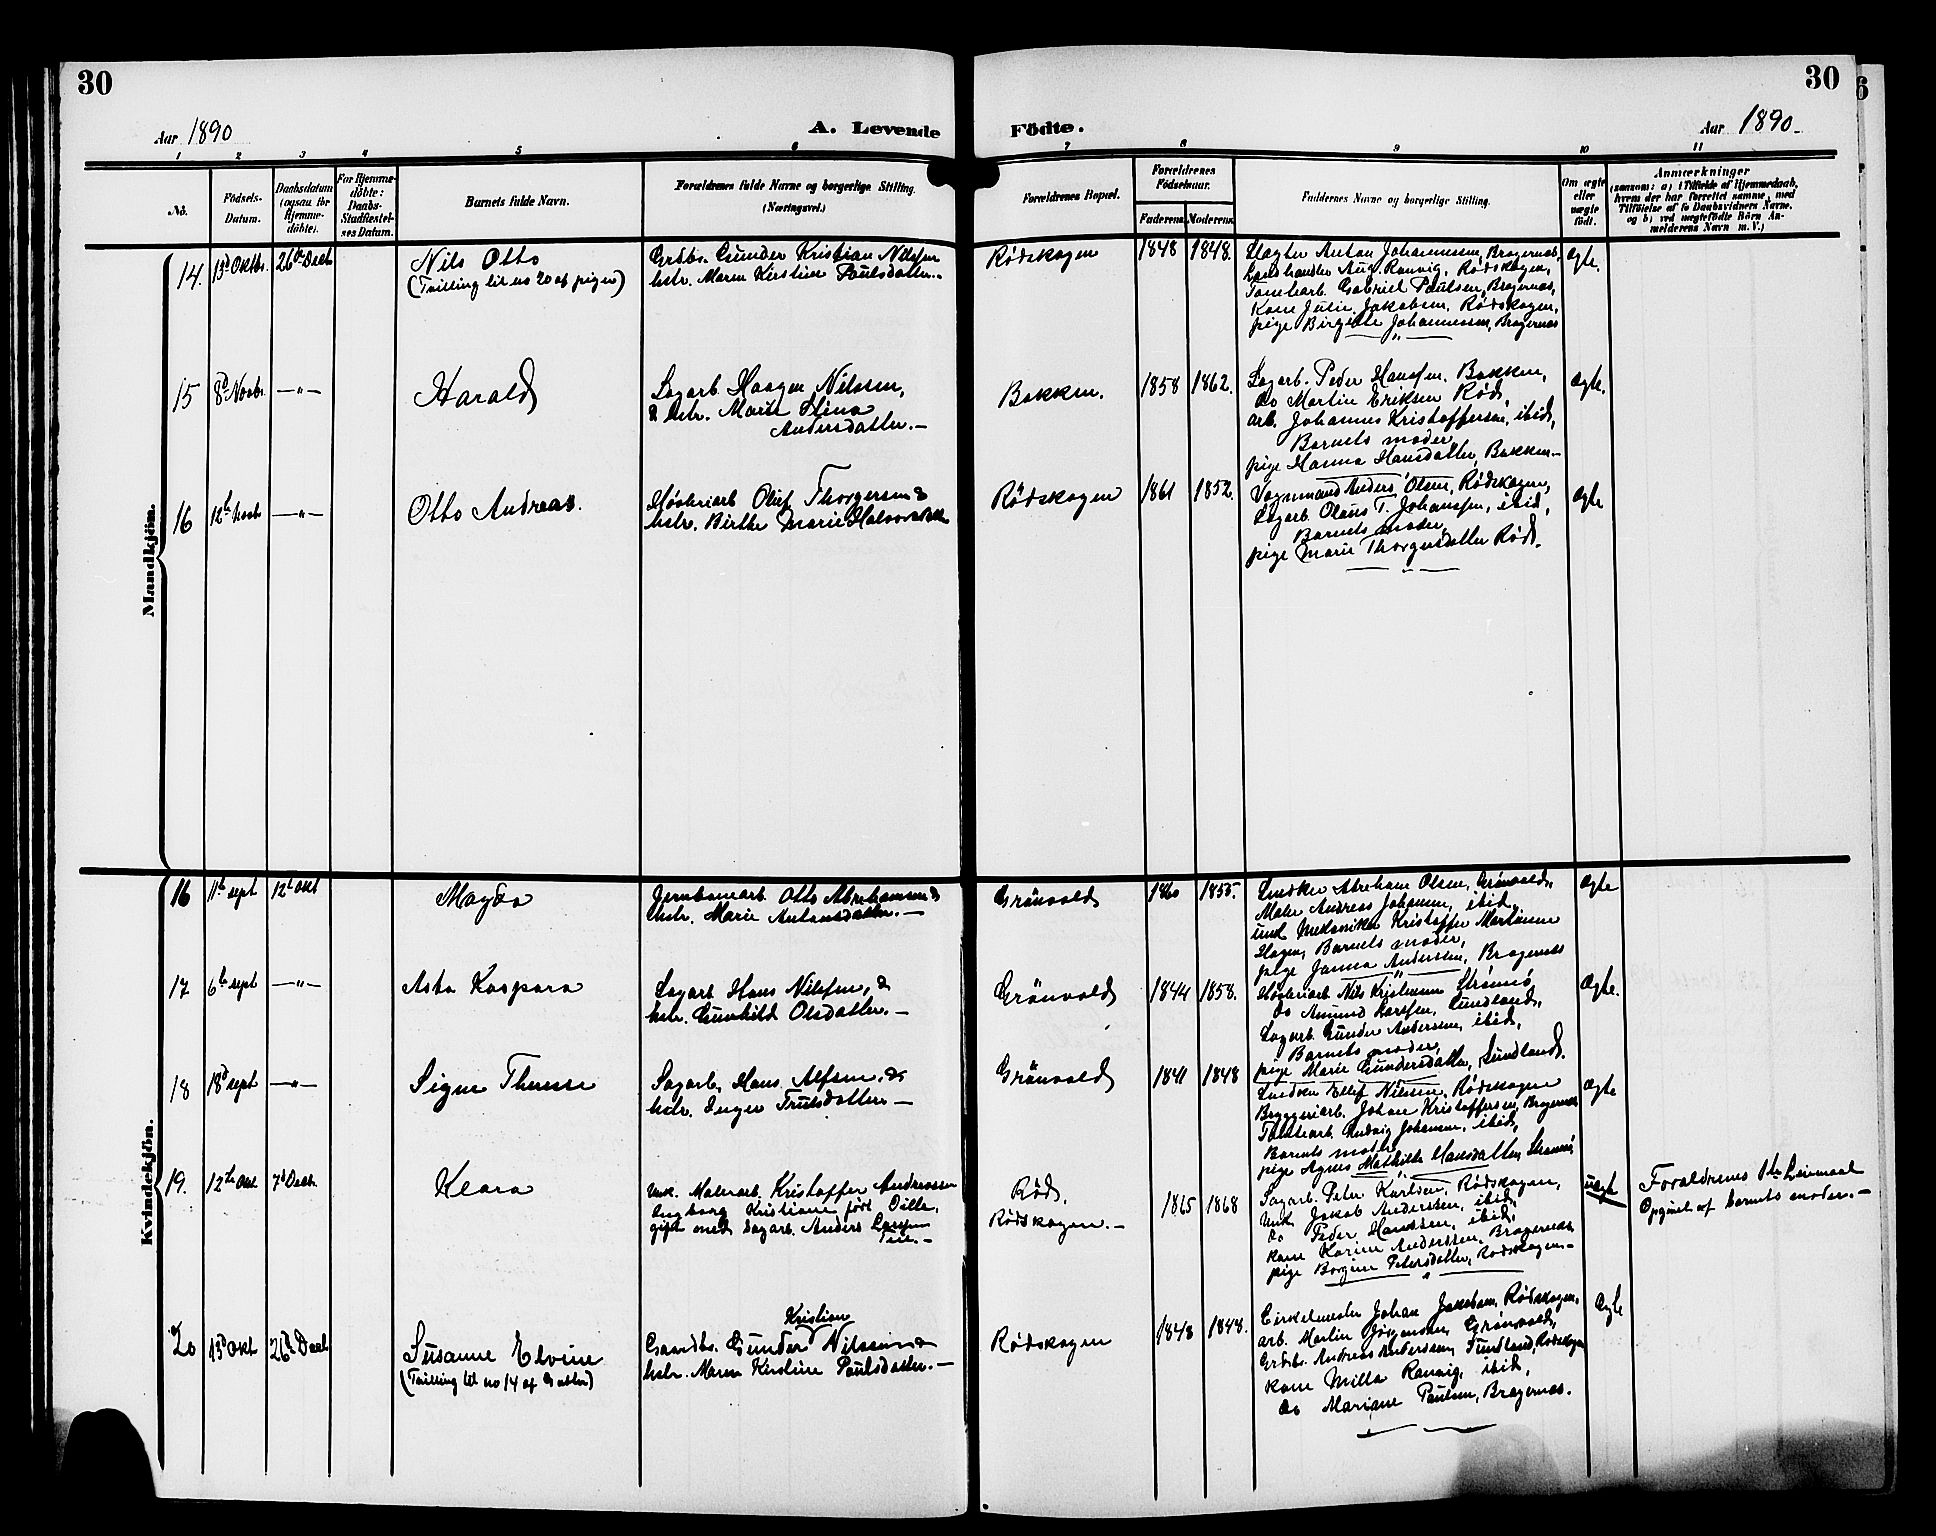 30
30
Aar 1890
A. Levende
Födte.
Aar 1890
1 2 3 4 5 6 7 8 9 10 11
No.
Födsels-Datum.
Daabsdatum (ogsaa for Hjemmedöbte).
For Hjemmedöbte: Daabs-Stadfæstelses Datum.
Barnets fulde Navn.
Forældrenes fulde Navne og borgerlige Stilling. (Næringsvei.)
Forældrenes Bopæl.
Forældrenes Födselsaar.
Faderens
Moderens
Faddernes Navne og borgerlige Stilling.
Om ægte eller uægte födt.
Anmærkninger
(saasom: a) i Tilfælde af Hjemmedaab,
hvem der har forrettet samme, med
Tilföielse af to Daabsvidners Navne,
og b) ved uægtefödte Börn An-
melderens Navn m. V.)
Mandkjön.
14. 13d Oktbr. 26de Decb
Nils Otto
(Tvilling til no 20 af piger)
Grdbr. Gunder Kristian Nilsen
hstr. Maren Kirstine Paulsdatter.
Rødskogen
1848 1848.
Slagter Anton Johannesen, Bragernæs,
Landhandler Aug. Ranvig, Rødskogen,
Gabriel Paulsen, Bragernæs,
Kone Julie Jakobsen, Rødskogen,
pige Birgitte Johannessen, Bragernæs
ægte.
15 8d Novbr. —"—
Harald
Sagarb Haagen Nilssen,
& hstr. Marie Stina
Andersdatter.—
Bakken.
1858 1862.
Sagarb. Peder Hansen, Bakken,
do Martin Eriksen Rød,
arb. Johannes Kristoffersen, ibid,
Barnets moder,
pige Hanna Hansdatter, Bakken—
Ægte.
16 12te Novb —"—
Otto Andreas.
Høvleriarb Oluf Thorgersen &
hstr. Birthe Marie Halvorsdatter
Rødskogen
1861 1852.
Vognmand Anders Olsen, Rødskogen,
Sagarb. Olaus T. Johansen, ibid,
Barnets moder,
pige Marie Thorgersdatter Rød.
ægte
Kvindekjön.
16 11te sept 12te Okt
Magda
Jernbanearb Otto Abrahamsen &
hstr. Marie Antonsdatter.—
Grönvold
1860 1855.
Snedker Abraham Olsen, Grönvold,
Maler Andreas Johansen, ibid,
unk Mekaniker Kristoffer Martinsen
Hagen, Barnets moder,
pige Janna Anderssen, Bragernæs
ægte
17 6te sept —"—
Asta Kaspara
Sagarb Hans Nilssen, &
hstr. Gunhild Olsdatter.—
Grönvold
1844 1858.
Høvleriarb Nils Kristiansen Strømsø,
do Amund Larsen, Sundland,
Sagarb. Gunder Andersen, ibid,
Barnets moder,
pige Marie Gundersdatter, Sundland.
Ægte.
18 18d sept —"—
Signe Therese
Sagarb, Hans Alfsen, &
hstr. Inger Trulsdatter—
Grönvold
1841 1848
Snedker Ellef Nilssen, Rødskogen
Bryggeriarb. Johan Kristoffersen, Bragernæs
Ludvig Johansen, ibid,
Barnets moder,
pige Agnes Mathilde Hansdatter, Strømsø
Ægte
19. 12te Okt 7d Decb.
Klara
Unk. Malerarb. Kristoffer Andreassen
Ingborg Kristiane født
gift med Sagarb. Anders Larsen
Rød,
Rødskogen.—
1865 1868
Sagarb. Peter Karlsen, Rødskogen,
Unk Jakob Anderssen, ibid,
do Peder Hanssen, ibid,
Kone Karine Anderssen, Bragernæs,
pige Borgine Petersdatter, Rødskogen.—
uægte
Foraldrenes 1ste Leiermaal
Opgivet af barnets moder.—
20 13d Okt 26d Decb
Susanne Elvine
(Tvilling til no 14 af Gutter)
Kristian
Gaardbr. Gunder Nilssen &
hstr. Maren Kirstine Paulsdatter.—
Rødskogen
1848 1848.
Cirkelmester Johan Jakobsen, Rødskogen,
arb. Martin Jørgensen, Grönvold,
Grdbr. Andreas Andersen, Sundland, Rødskogen
Kone Milla Ranvig, ibid,
do Mariane Paulsen, Bragernæs.
Ægte